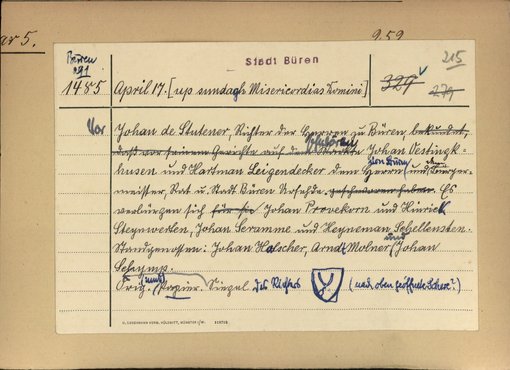 ar 5.
959
Stadt Büren
Büren
291
1485
April 17. [up sundagh Misericordias Domini]
329
215
279
Vor Johan de Stutener, Richter der Herren zu Büren, bekundet,
daß vor seinem Gerichte auf dem Markte schwören Johan Vestingk-
husen und Hartman Leigendecker dem Herrn von Büren und den Bürger-
meister, Rat u. Stadt Büren Urfehde. geschworen haben. Es
verbürgen sich für sie Johan Provekorn und Hinrick
Steynwerten, Johan Seramme und Heyneman Schellensten.
Standgenossen: Johan Halscher, Arndt Molner und Johan
Schymp.
Orig. (mut) Papier. Siegel des Richters (nach oben geöffnete Schere?)